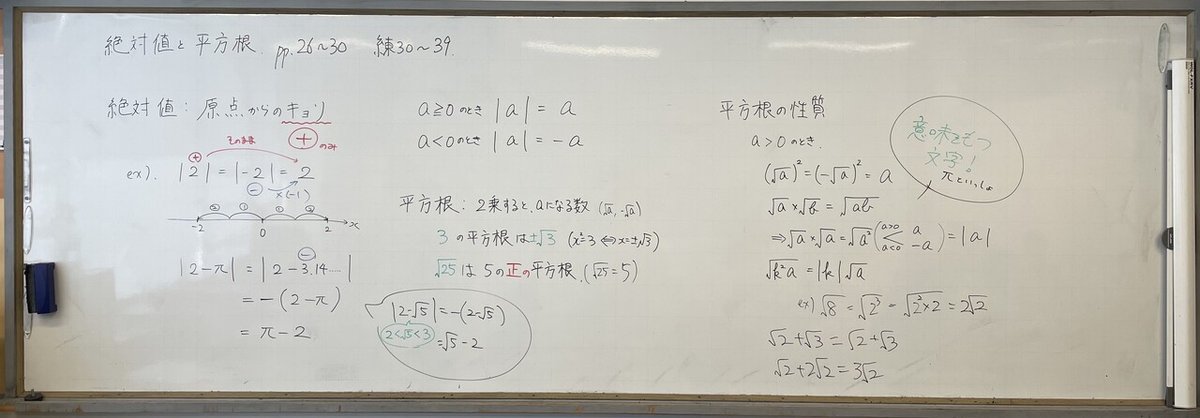 絶対値と平方根. pp.26~30 練30~39.
絶対値: 原点からのキョリ
そのまま
⊕のみ
⊕
ex). |2| = |-2| = 2
⊖ ×(-1)
② ① ① ②
-2 0 2 x
⊖
|2-π| = |2-3.14……|
= -(2-π)
= π-2
a≧0のとき |a| = a
a<0のとき |a| = -a
平方根: 2乗すると、aになる数 (√a, -√a)
3の平方根は±√3 (x²=3 ⇔ x=±√3)
√25は5の正の平方根. (√25=5)
|2-√5| = -(2-√5)
2<√5<3
=√5-2
平方根の性質
a>0のとき.
(√a)² = (-√a)² = a
√a×√b = √ab
⇒√a×√a = √a² (a>0 a a<0 -a) = |a|
√k²a = |k|√a
ex) √8 = √2³ = √2²×2 = 2√2
√2+√3 = √2+√3
√2+2√2 = 3√2
意味をもつ
文字!
πといっしょ